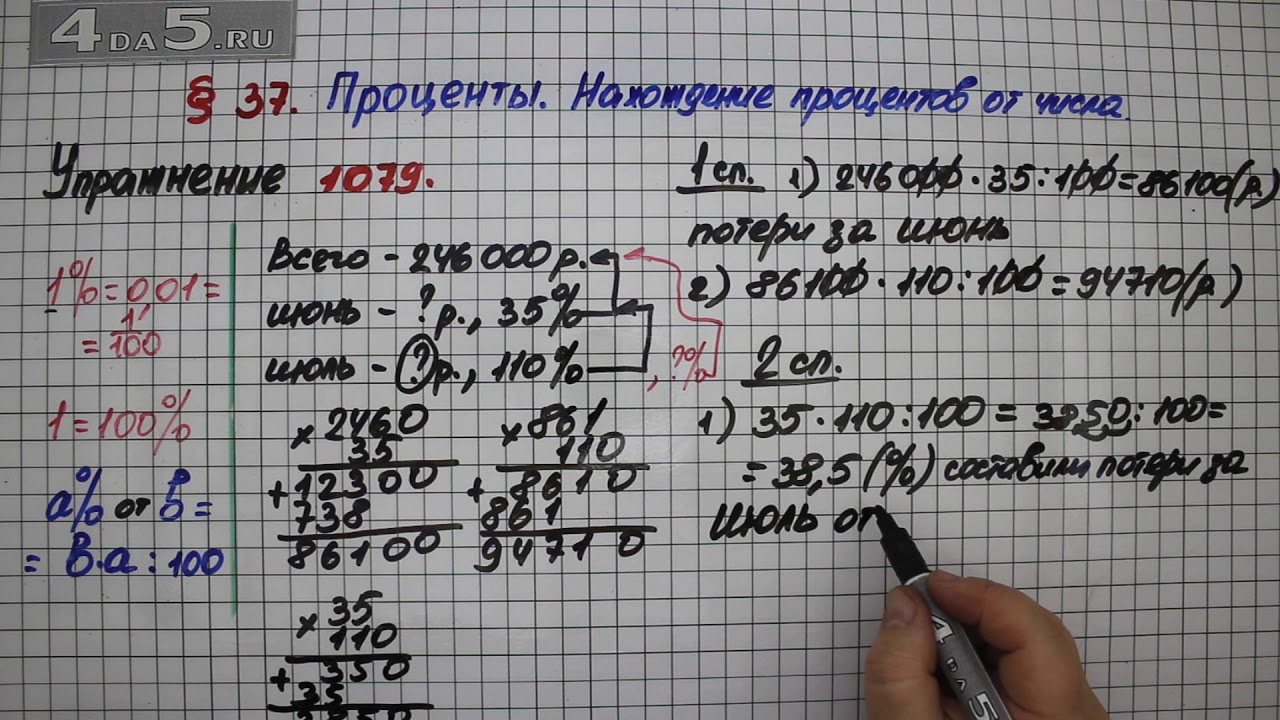 4DA5.RU
§ 37. Проценты. Нахождение процентов от числа.
Упражнение 1079.
1% = 0,01 =
= 1/100
1 = 100%
a% от b =
= b·a : 100
Всего - 246 000 р.
июнь - ? р., 35%
июль - ? р., 110%
, ?%
× 2460
35
+ 12300
738
86100
× 861
110
+ 8610
861
94710
× 35
110
+ 350
35
1 сп. 1) 246 000 · 35 : 100 = 86 100 (р.)
потери за июнь
2) 86100 · 110 : 100 = 94710 (р.)
2 сп.
1) 35 · 110 : 100 = 3850 : 100 =
= 38,5 (%) составили потери за
июль от
4DA5